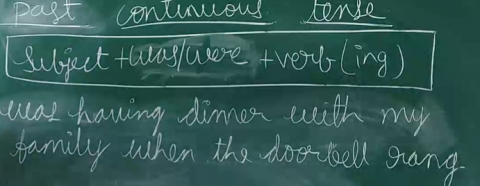 Past continuous tense
Subject + was/were + verb (ing)
was having dinner with my
family when the doorbell rang.